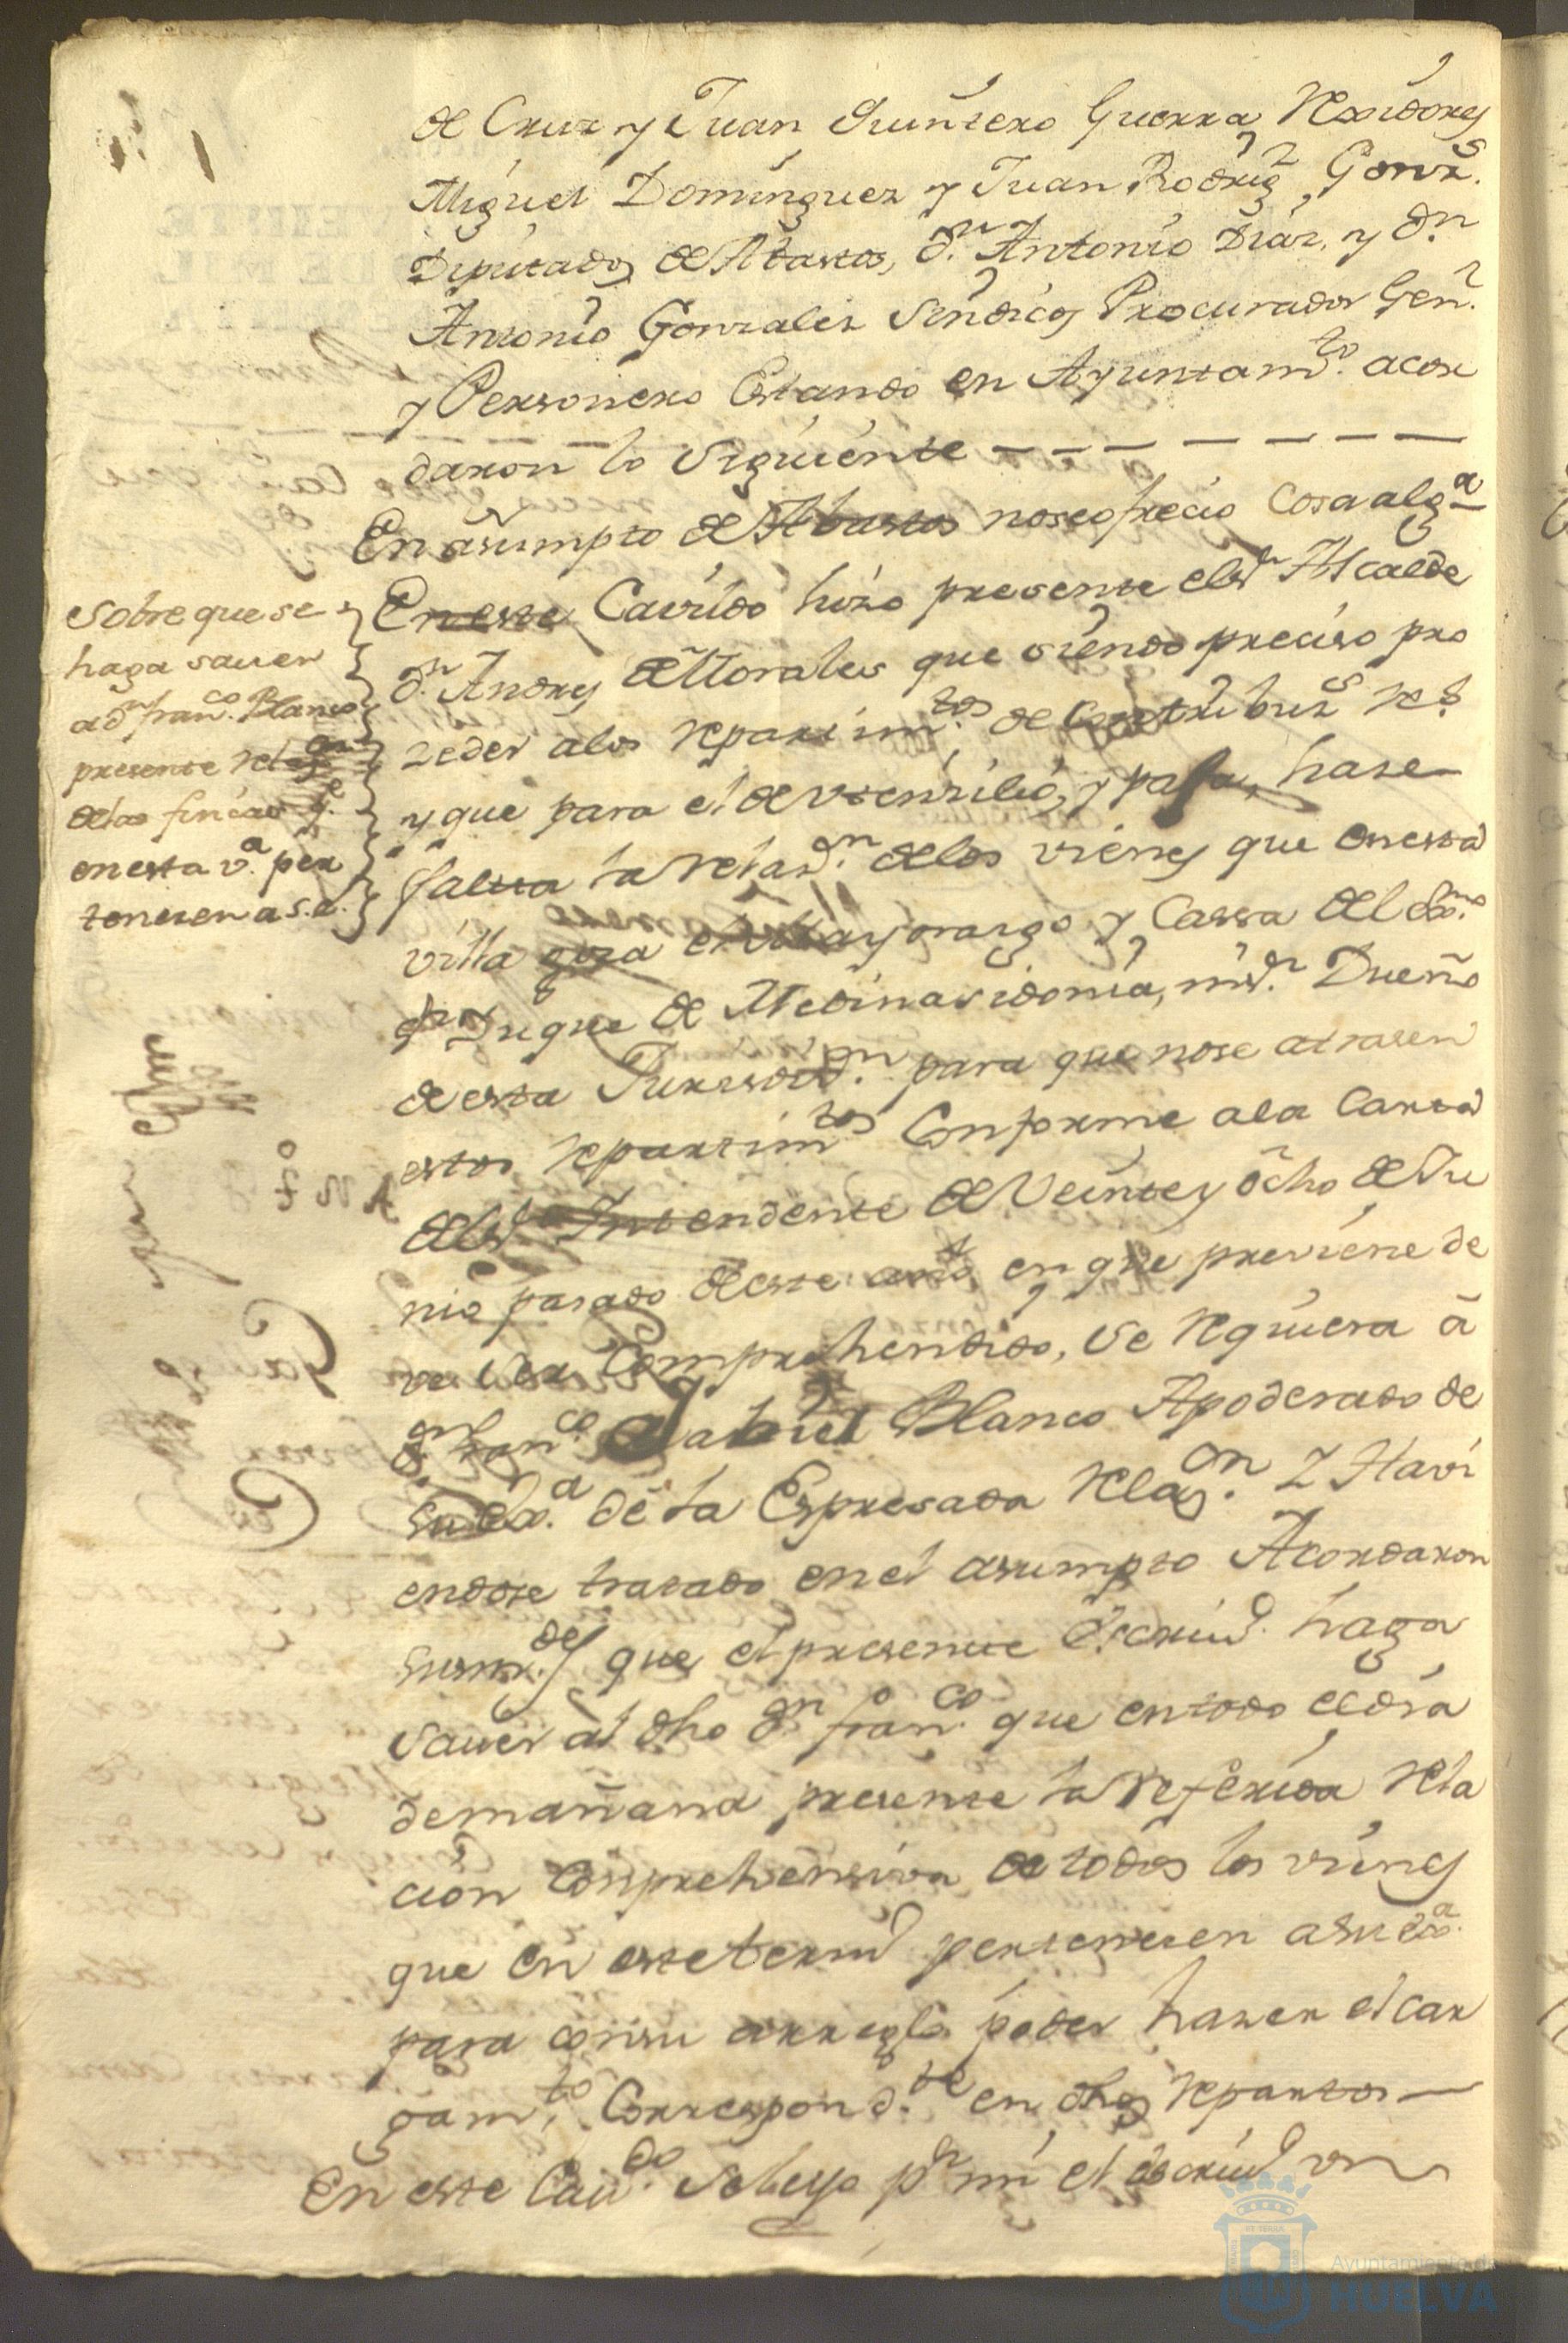 de Cruz y Juan Quintero Guerra Rexidores
Miguel Dominguez y Juan Rodrig.z Gonz.s
Diputados de Abastos, d.n Antonio Diaz, y d.n
Antonio Gonzalez Sindicos Procurador Gen.l
y Personero Estando en Ayuntam.to acor
daron lo siguiente
En asumpto de Abastos noseofrecio Cosa alg.a
Sobre que se
haga saver
a d.n fran.co Blanco
presente relaz.on
delas fincas q.e
en esta v.a per
tenesen a S.E.
En este Cavildo hizo presente el s.r Alcalde
d.n Andres de Morales que siendo preciso pro
zeder alos repartim.tos de Contribuz.s R.s
y que para el de vtensilio, y paja, hase
falta la relaz.on delos vienes que en esta
villa goza el Mayorazgo y Cassa del Ex.mo
s.r Duque de Medinasidonia, mi s.r Dueño
de esta Jurisdiz.on para que nose atrasen
estos repartim.tos Conforme ala Carta
del s.r Intendente de Veinte y ocho de Ju
nio pasado deeste año, en que previene de
ve ser Comprehendido, se requiera á
d.n fran.co Gabriel Blanco Apoderado de
su Ex.a dé la Expresada relaz.on Y Havi
endose tratado en el asumpto Acordaron
susm.des que el presente Escriv.o haga
saver al dho d.n fran.co que en todo el dia
demañana presente la referida rela
ción Comprehensiva de todos los vienes
que en este termi.o pertenesen a su Ex.a
para consu arreglo poder haser el car
gam.to Correspond.te en dhos repartos
En este Cav.do se leyo p.r mi el escriv.o vn
Ayuntamiento de
HUELVA